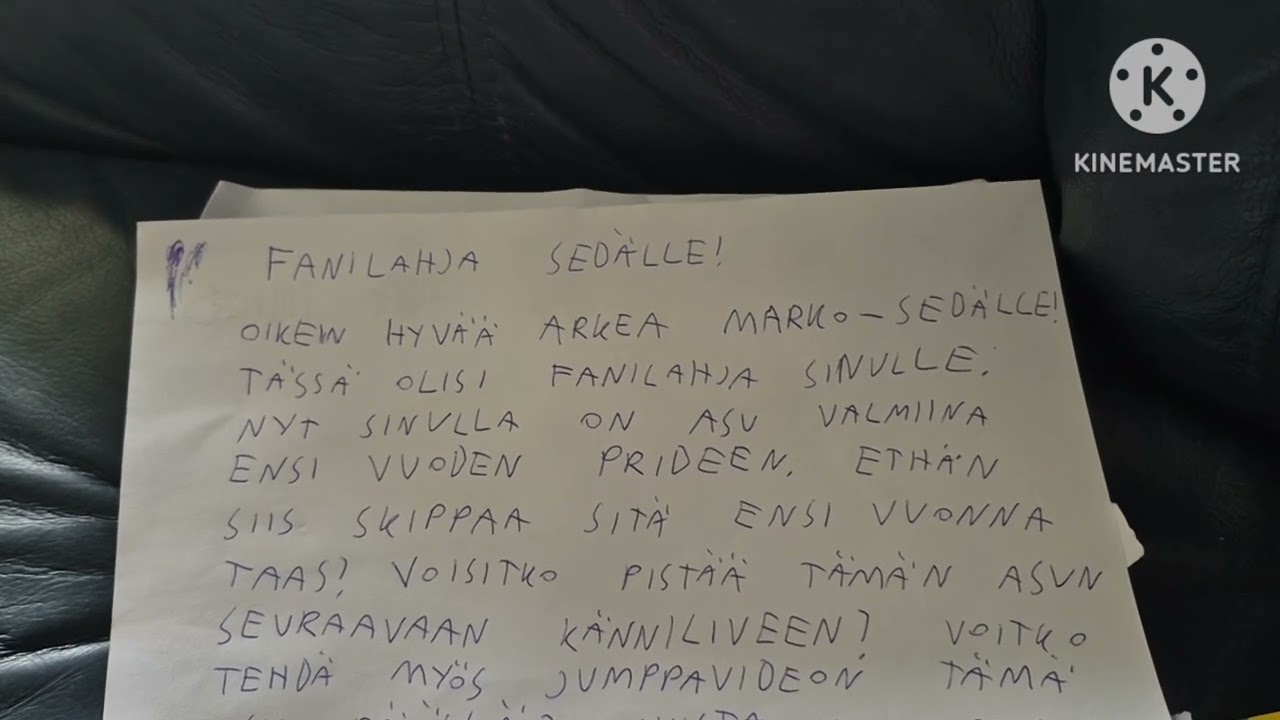 K
KINEMASTER
FANILAHJA SEDÄLLE!
OIKEIN HYVÄÄ ARKEA MARKO-SEDÄLLE!
TÄSSÄ OLISI FANILAHJA SINULLE.
NYT SINULLA ON ASU VALMIINA
ENSI VUODEN PRIDEEN. ETHÄN
SIIS SKIPPAA SITÄ ENSI VUONNA
TAAS? VOISITKO PISTÄÄ TÄMÄN ASUN
SEURAAVAAN KÄNNILIVEEN? VOITKO
TEHDÄ MYÖS JUMPPAVIDEON TÄMÄ